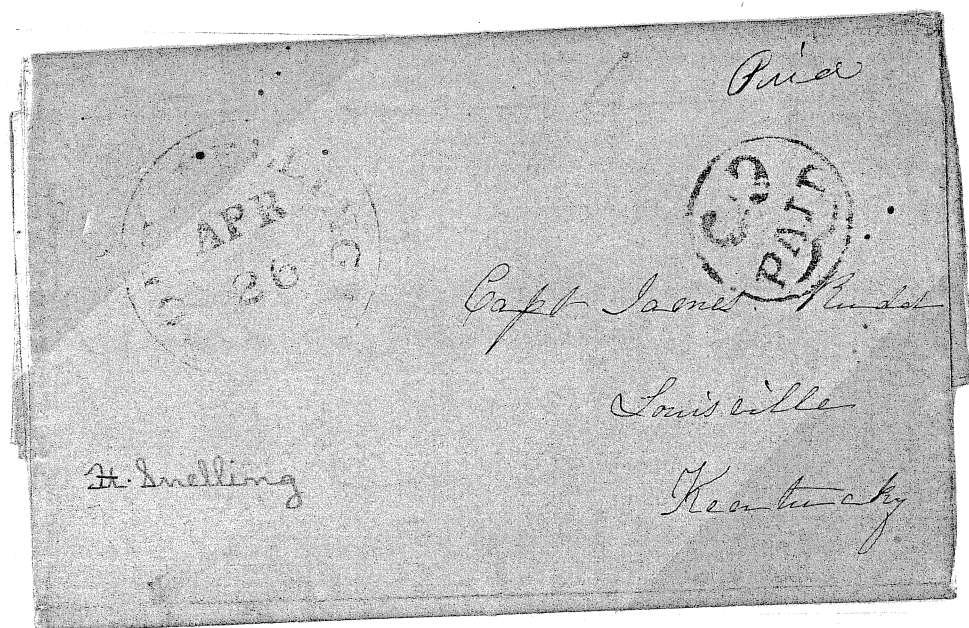 Paid
APR
26
PAID
Capt James Rudd
Louisville
Kentucky
H. Snelling